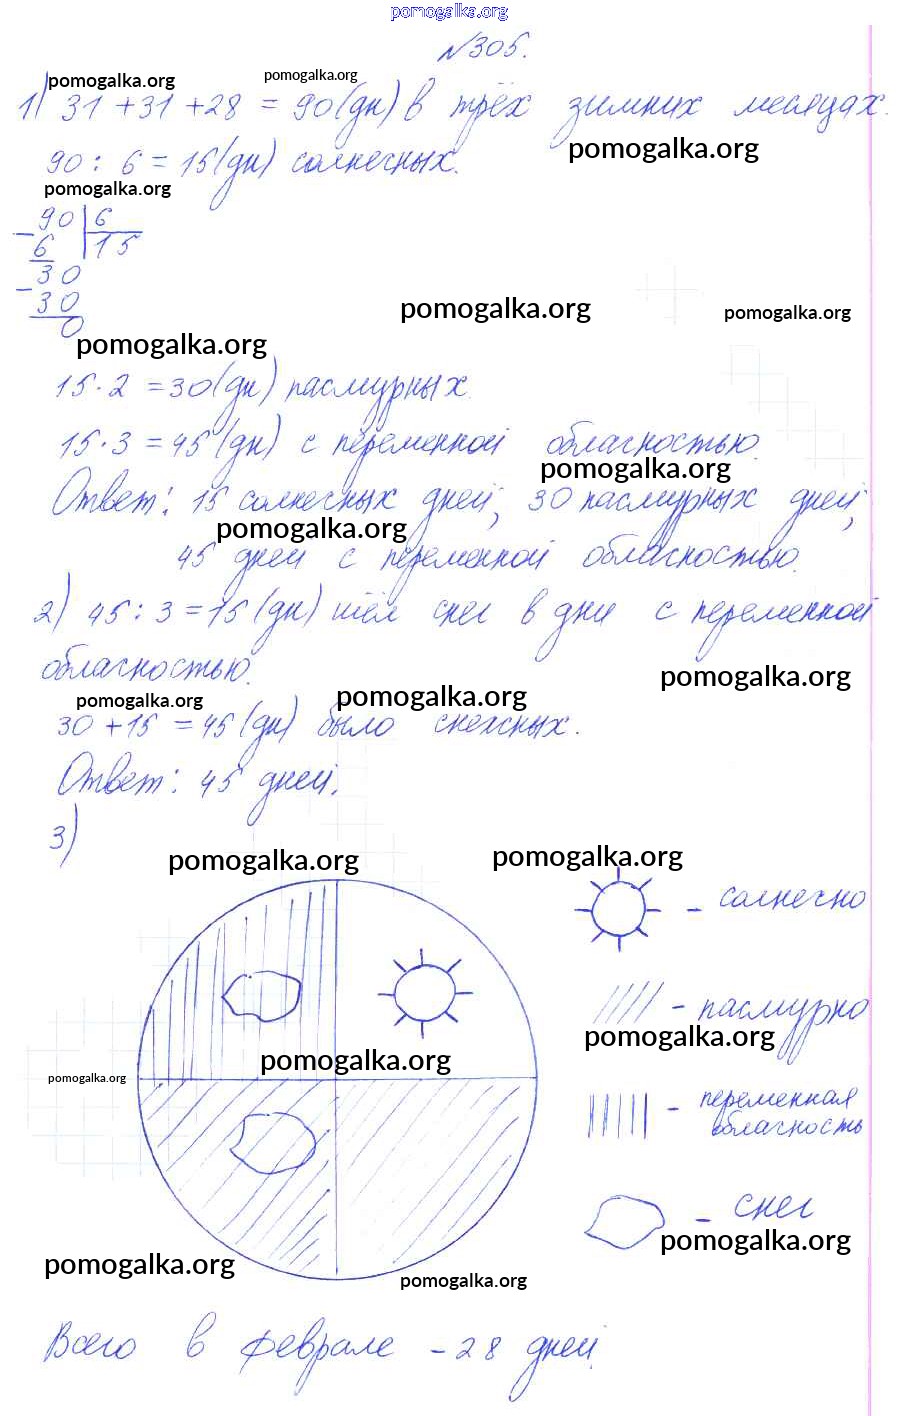 pomogalka.org
№305.
pomogalka.org pomogalka.org
1) 31 + 31 + 28 = 90 (дн) в трёх зимних месяцах.
pomogalka.org
90 : 6 = 15 (дн) солнечных.
pomogalka.org
90 | 6
6 15
30
30
0
pomogalka.org pomogalka.org
pomogalka.org
15 · 2 = 30 (дн) пасмурных.
15 · 3 = 45 (дн) с переменной облачностью.
pomogalka.org
Ответ: 15 солнечных дней, 30 пасмурных дней,
pomogalka.org
45 дней с переменной облачностью.
2) 45 : 3 = 15 (дн) шёл снег в дни с переменной
облачностью.
pomogalka.org
pomogalka.org pomogalka.org
30 + 15 = 45 (дн) было снежных.
Ответ: 45 дней.
3)
pomogalka.org pomogalka.org
- солнечно
- пасмурно
pomogalka.org
pomogalka.org
pomogalka.org
- переменная
облачность
- снег
pomogalka.org
pomogalka.org
pomogalka.org
Всего в феврале - 28 дней.